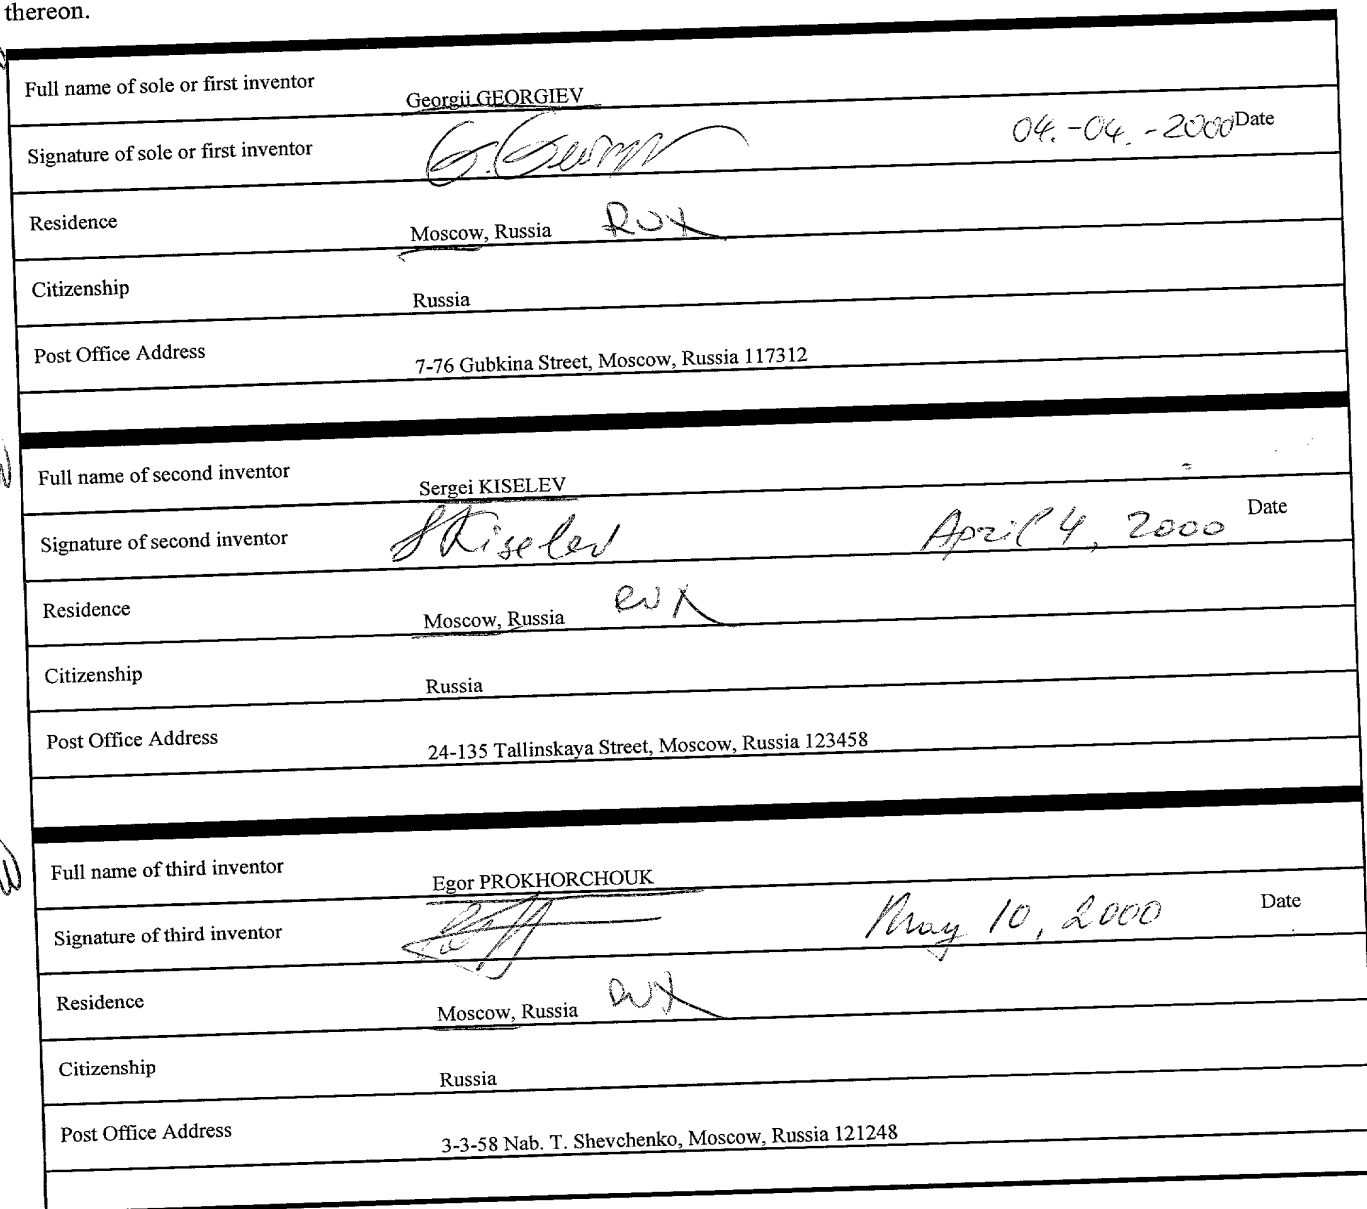 thereon.
Full name of sole or first inventor Georgii GEORGIEV
Signature of sole or first inventor G. Georgiev 04.-04.-2000 Date
Residence Moscow, Russia RUX
Citizenship Russia
Post Office Address 7-76 Gubkina Street, Moscow, Russia 117312
Full name of second inventor Sergei KISELEV
Signature of second inventor SKiselev April 4, 2000 Date
Residence Moscow, Russia RUX
Citizenship Russia
Post Office Address 24-135 Tallinskaya Street, Moscow, Russia 123458
Full name of third inventor Egor PROKHORCHOUK
Signature of third inventor May 10, 2000 Date
Residence Moscow, Russia RUX
Citizenship Russia
Post Office Address 3-3-58 Nab. T. Shevchenko, Moscow, Russia 121248